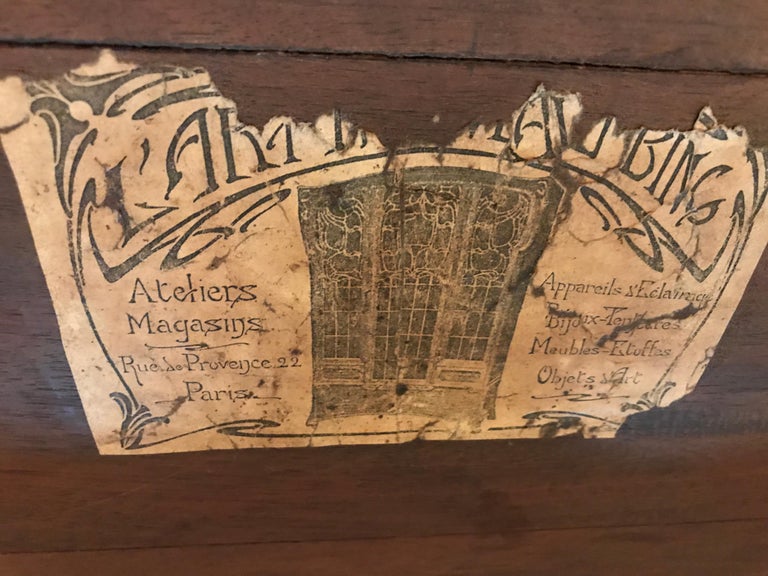 L'ART NOUVEAU BING
Ateliers
Magasins
Rue de Provence 22
Paris
Appareils d'Eclairage
Bijoux-Tentures
Meubles-Etoffes
Objets d'Art